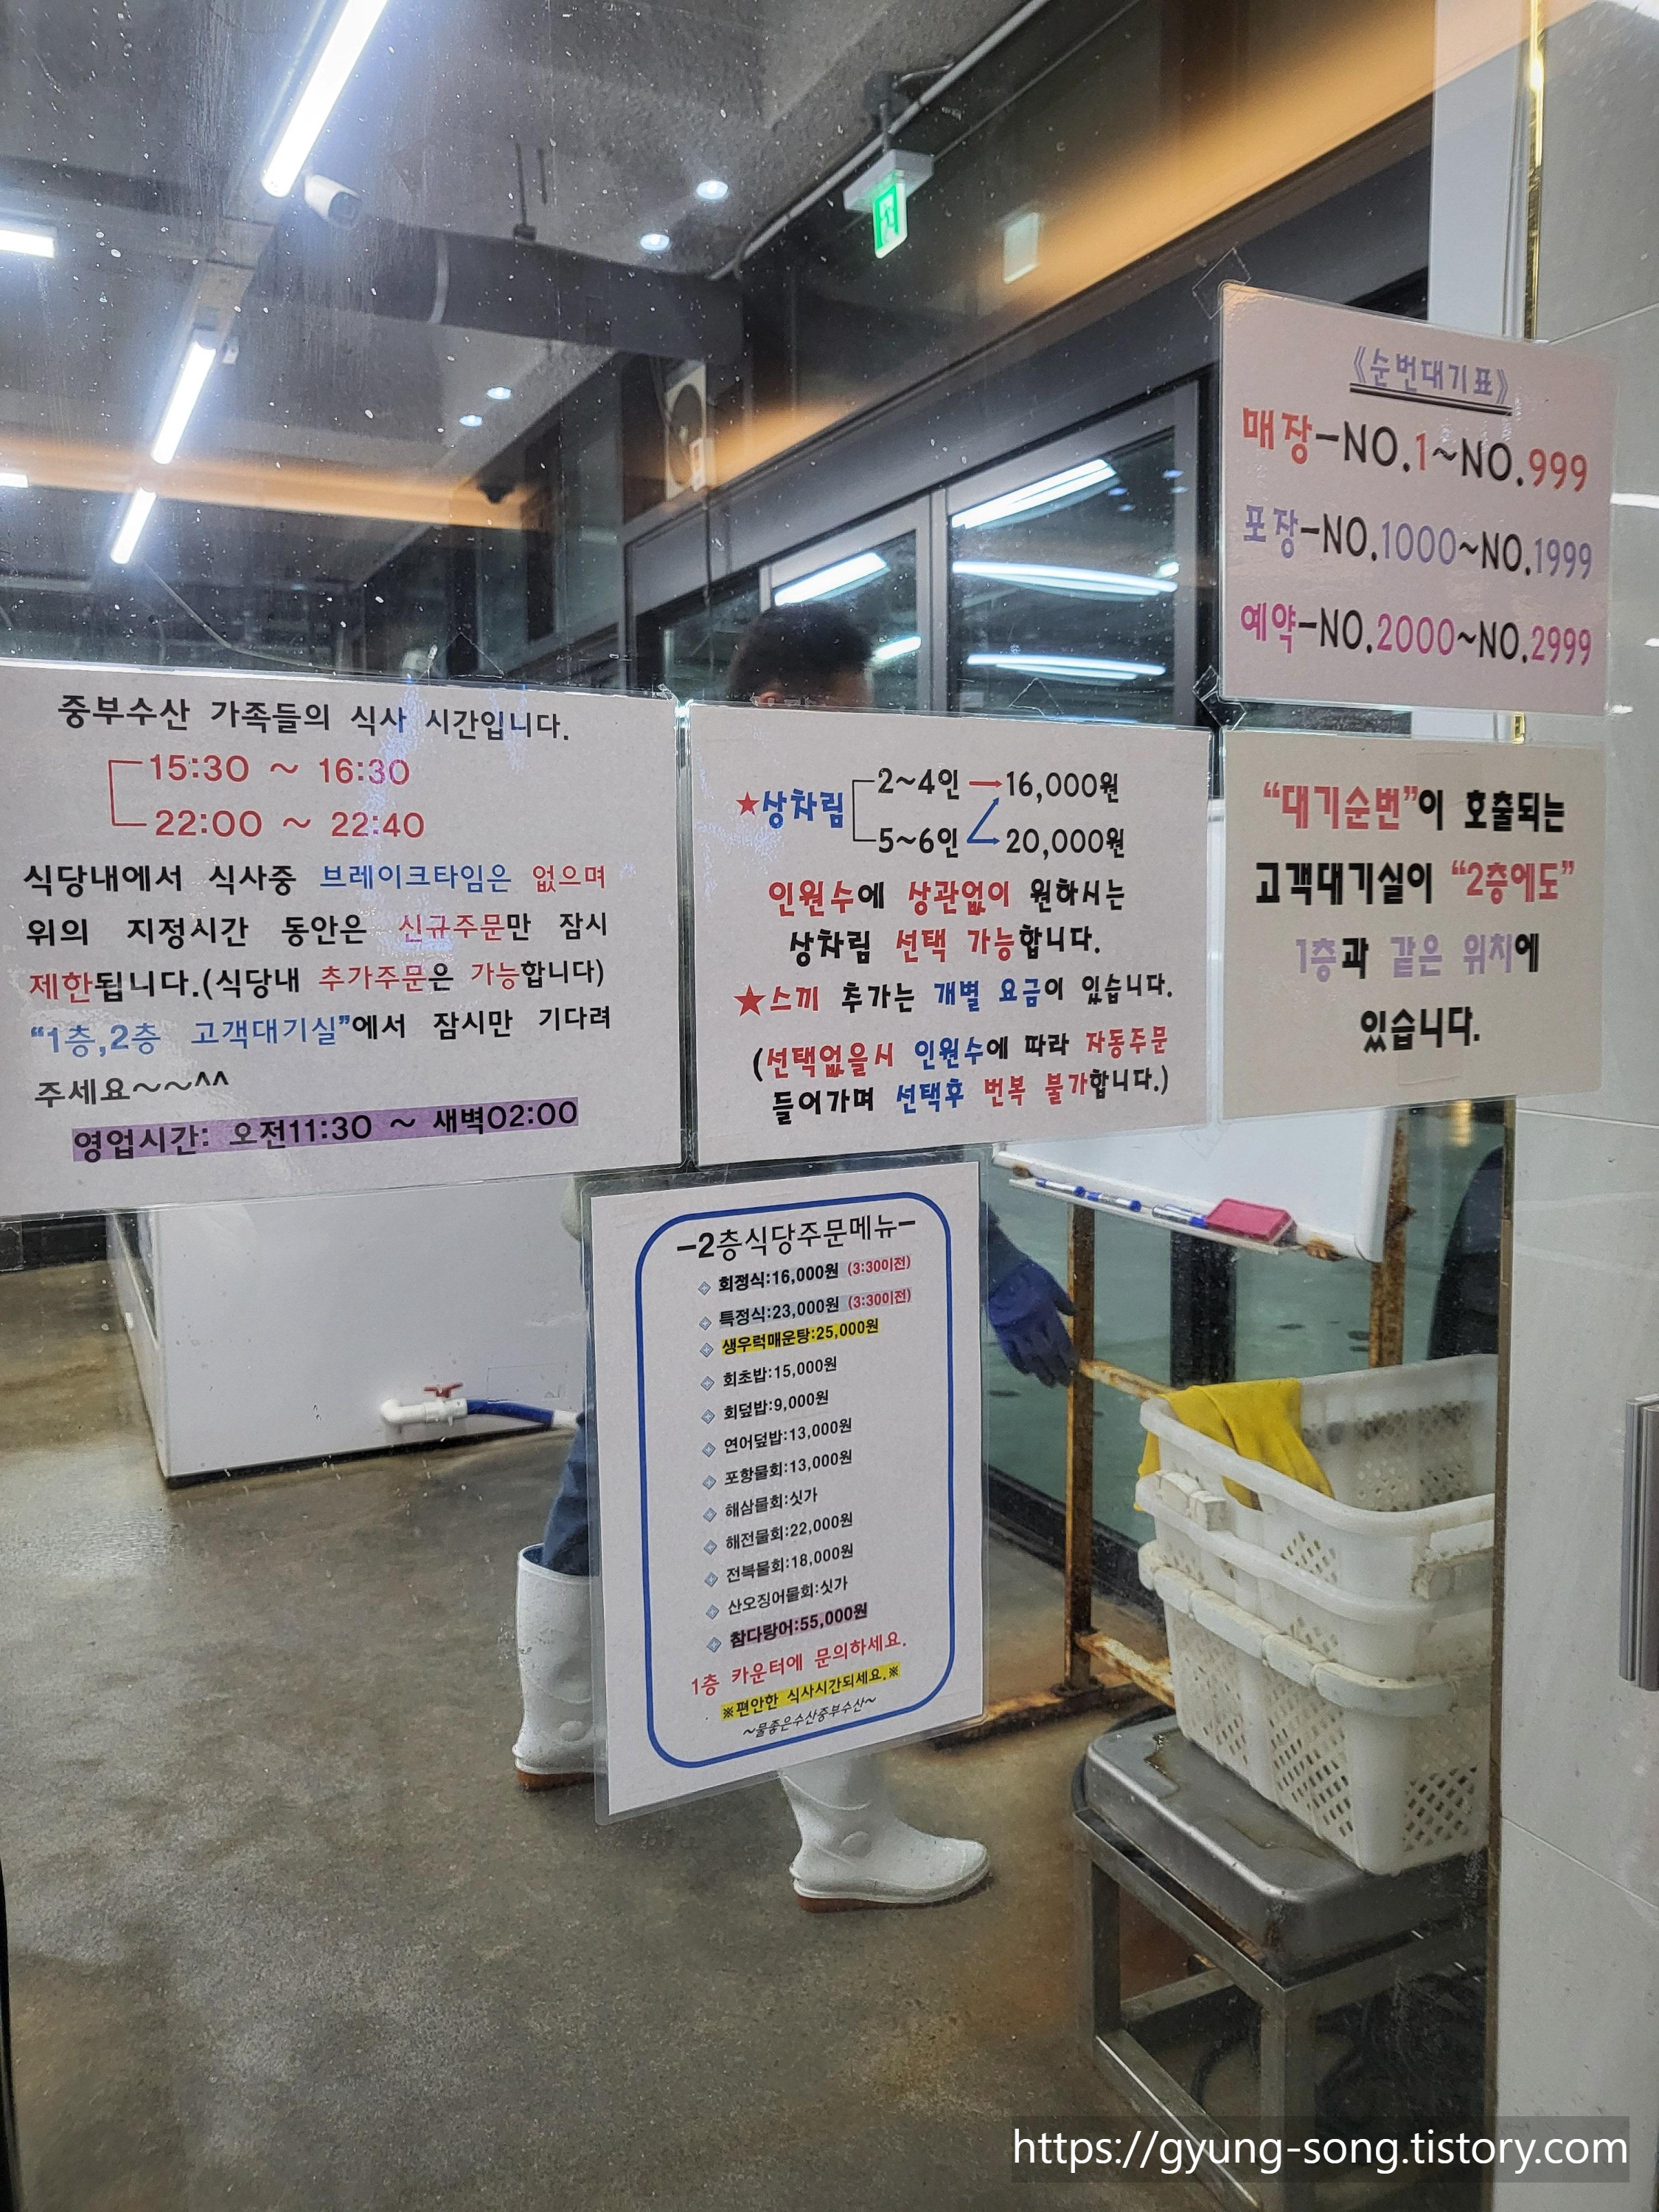 《순번대기표》
매장-NO.1~NO.999
포장-NO.1000~NO.1999
예약-NO.2000~NO.2999
중부수산 가족들의 식사 시간입니다.
15:30 ~ 16:30
22:00 ~ 22:40
식당내에서 식사중 브레이크타임은 없으며
위의 지정시간 동안은 신규주문만 잠시
제한됩니다.(식당내 추가주문은 가능합니다)
“1층,2층 고객대기실”에서 잠시만 기다려
주세요~~^^
영업시간: 오전11:30 ~ 새벽02:00
★상차림
2~4인→16,000원
5~6인 20,000원
인원수에 상관없이 원하시는
상차림 선택 가능합니다.
★스끼 추가는 개별 요금이 있습니다.
(선택없을시 인원수에 따라 자동주문
들어가며 선택후 번복 불가합니다.)
“대기순번”이 호출되는
고객대기실이 “2층에도”
1층과 같은 위치에
있습니다.
-2층식당주문메뉴-
회정식:16,000원 (3:30이전)
특정식:23,000원 (3:30이전)
생우럭매운탕:25,000원
회초밥:15,000원
회덮밥:9,000원
연어덮밥:13,000원
포항물회:13,000원
해삼물회:싯가
해전물회:22,000원
전복물회:18,000원
산오징어물회:싯가
참다랑어:55,000원
1층 카운터에 문의하세요.
※편안한 식사시간되세요.※
~물좋은수산중부수산~
https://gyung-song.tistory.com